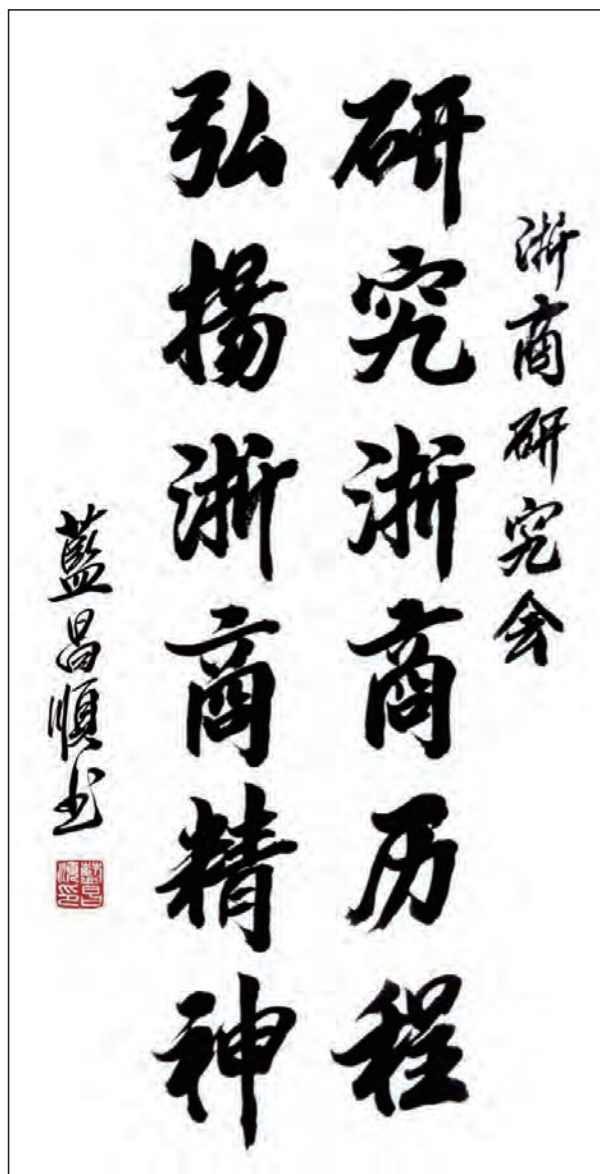 浙商研究会
研究浙商历程
弘揚浙商精神
藍昌順书